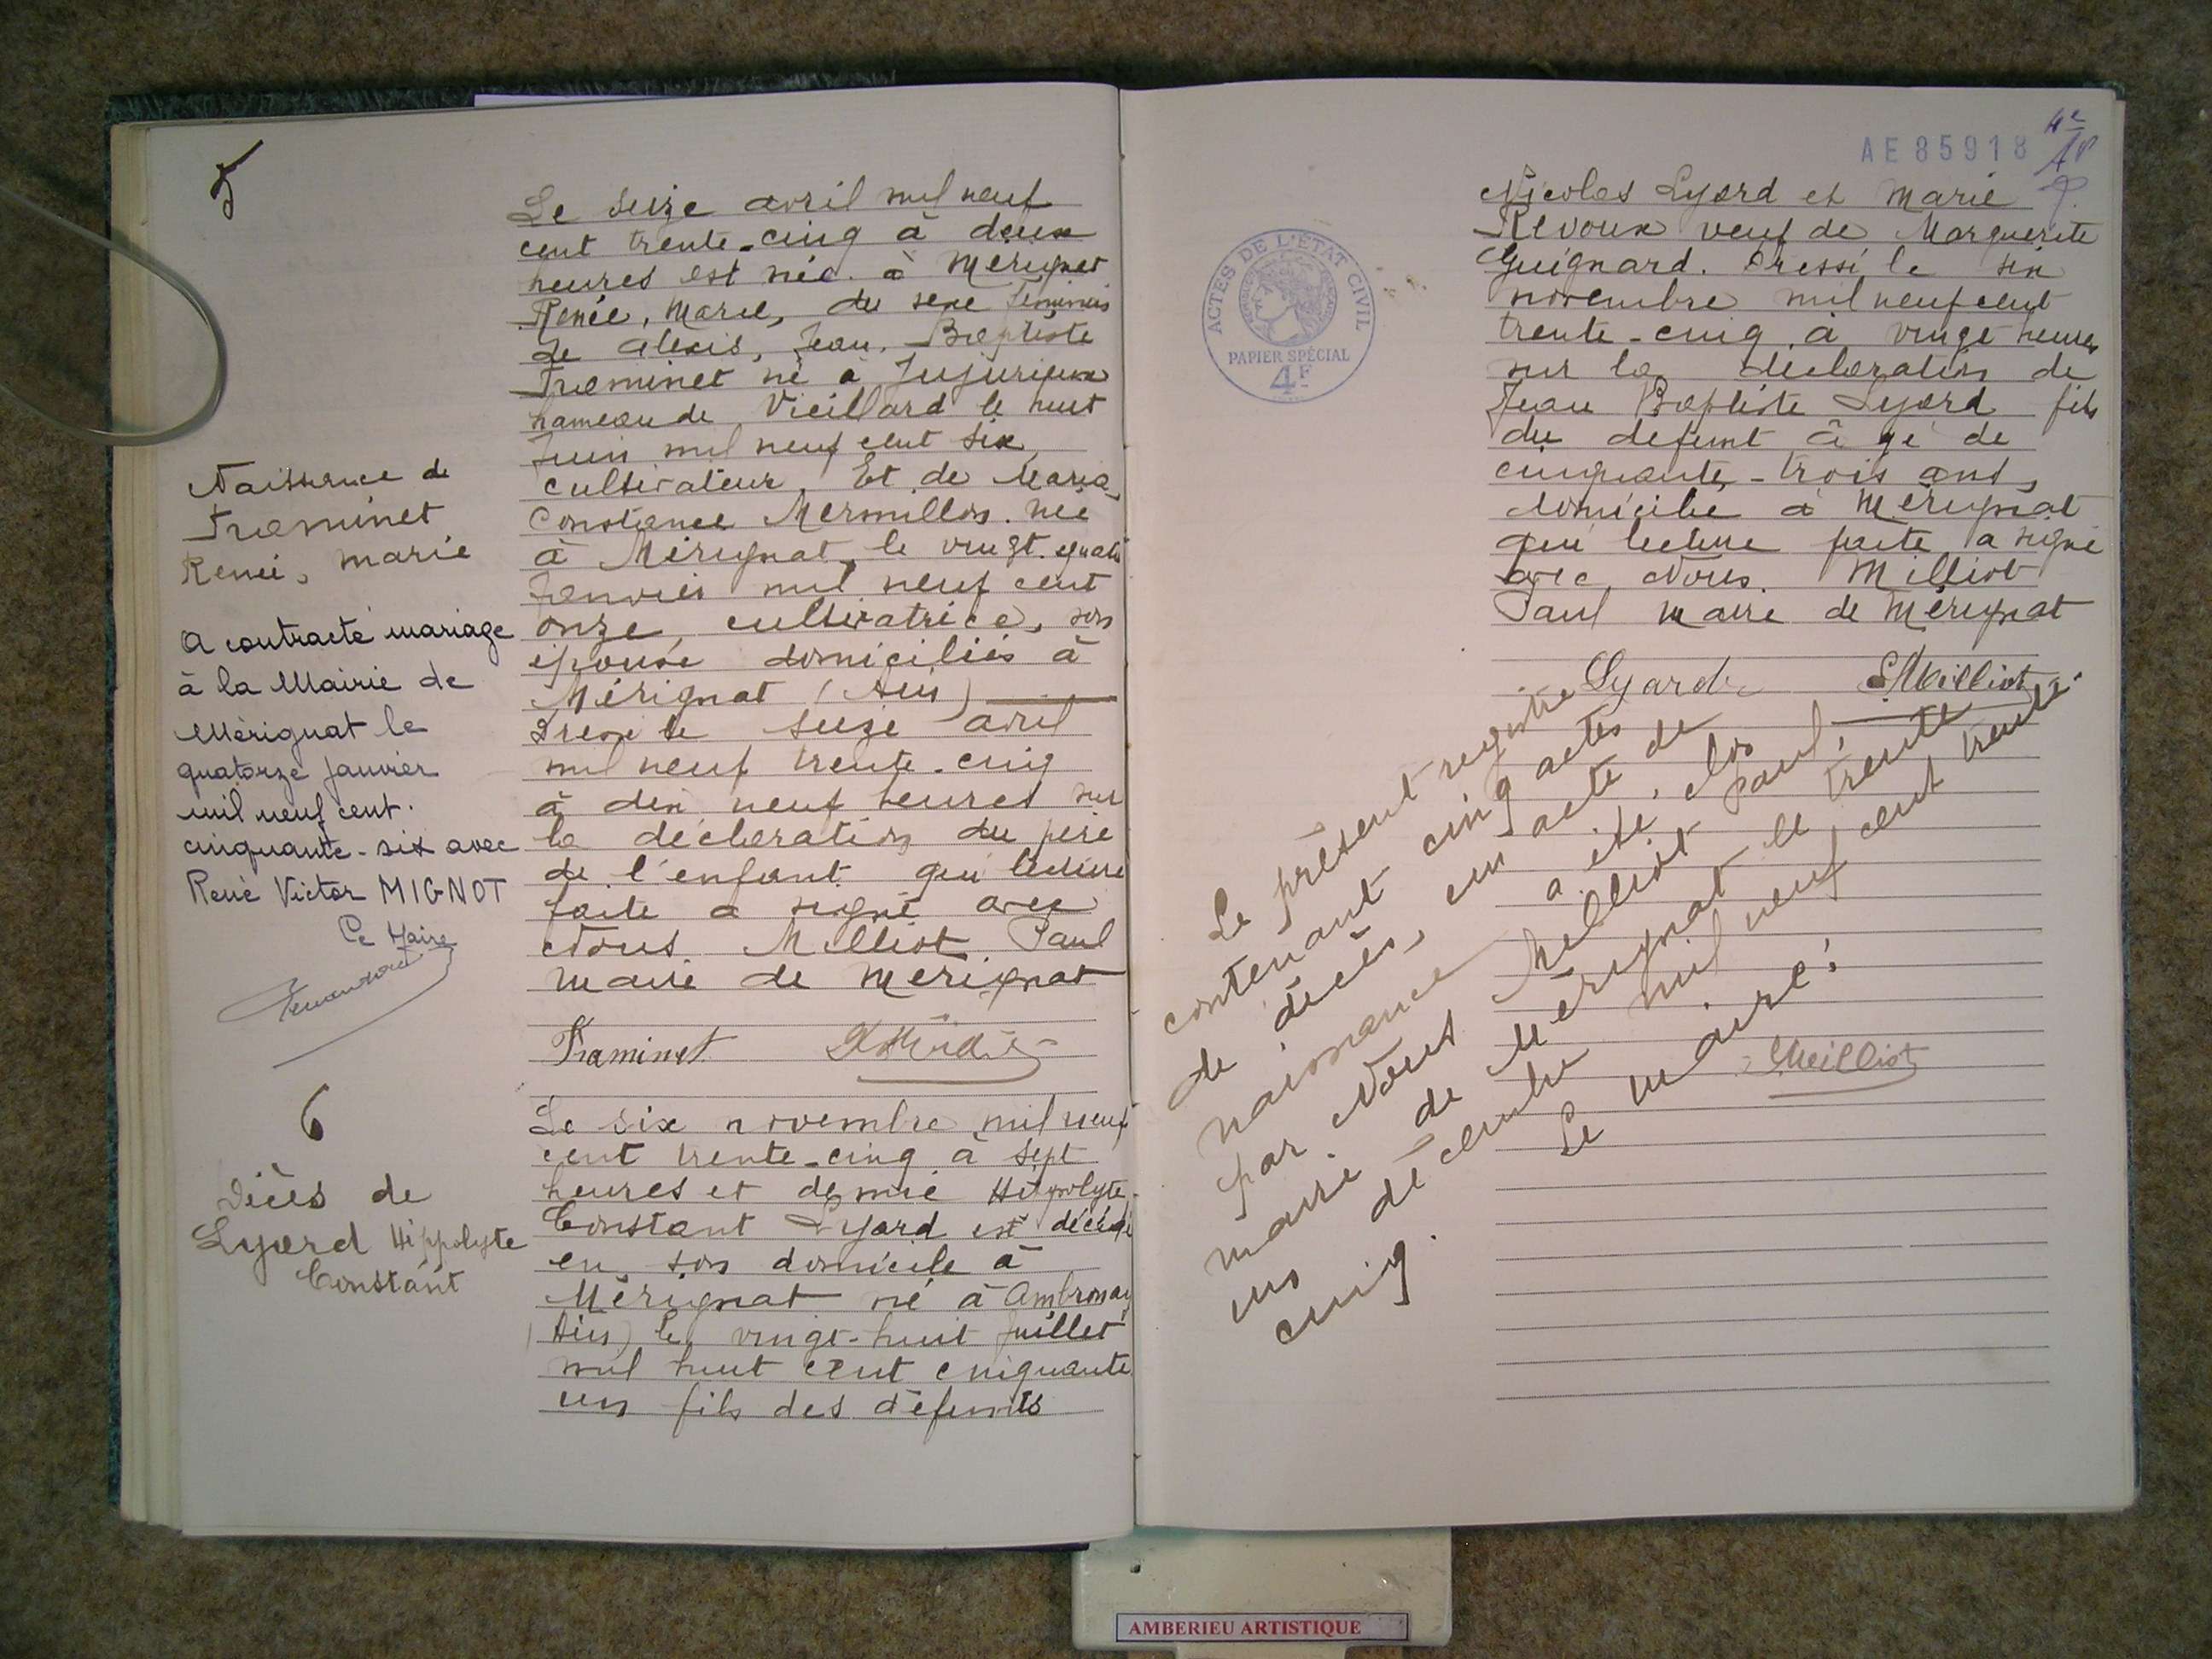 5
Naissance de
Traminet
Renée, Marie
A contracté mariage
à la Mairie de
Mérignat le
quatorze janvier
mil neuf cent
cinquante-six avec
René Victor MIGNOT
Le Maire
Le seize avril mil neuf
cent trente-cinq à deux
heures est née à Mérignat
Renée, Marie, du sexe féminin
de Alexis, Jean, Baptiste
Traminet né à Jujurieux
hameau de Vieillard le huit
Juin mil neuf cent six
cultivateur. Et de Maria
Constance Mermillon née
à Mérignat, le vingt quatre
Janvier mil neuf cent
onze, cultivatrice, son
épouse domiciliés à
Mérignat (Ain)
Dressé le seize avril
mil neuf trente-cinq
à dix neuf heures sur
la déclaration du père
de l'enfant qui lecture
faite a signé avec
Nous Milliot Paul
maire de Mérignat
Traminet
6
Décès de
Lyard Hippolyte
Constant
Le six novembre mil neuf
cent trente-cinq à sept
heures et demie Hippolyte
Constant Lyard est décédé
en son domicile à
Mérignat né à Ambronay
(Ain) le vingt-huit Juillet
mil huit cent cinquante
un fils des défunts
AE 85918
4e
ACTES DE L'ÉTAT CIVIL
PAPIER SPÉCIAL
4F
Nicolas Lyard et Marie
Revoux veuf de Marguerite
Guignard. Dressé le six
novembre mil neuf cent
trente-cinq à vingt heures
sur la déclaration de
Jean Baptiste Lyard fils
du défunt âgé de
cinquante-trois ans,
domicilié à Mérignat
qui lecture faite a signé
avec Nous Milliot
Paul maire de Mérignat
Lyard Milliot
Le présent registre
contenant cinq actes
de décès, un acte de
naissance a été clos
par Nous Milliot Paul,
maire de Mérignat le trente
un décembre mil neuf cent trente-
cinq.
Le maire:
Milliot
AMBERIEU ARTISTIQUE